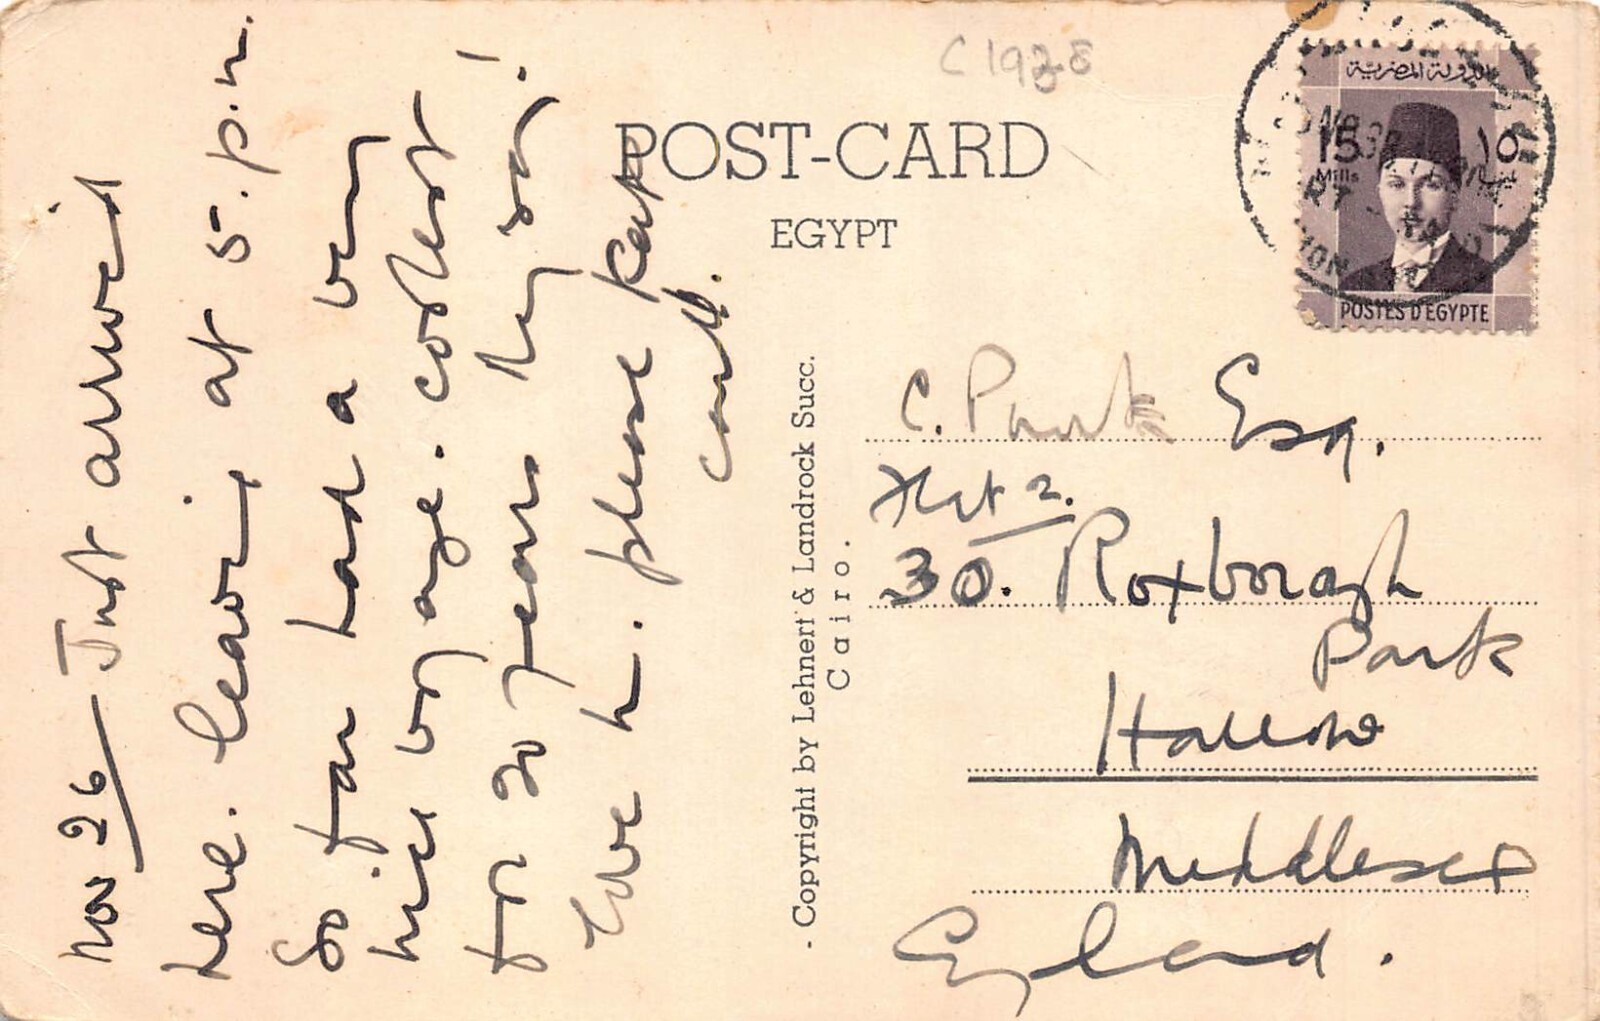 Nov 26 Just arrived
here. leaving at 5.p.m.
So far had a very
nice voyage. coolest
for 20 years they say!
love h. please keep
card.
C 1938
POST-CARD
EGYPT
- Copyright by Lehnert & Landrock Succ.
Cairo.
الدولة المصرية
15 ١٥
Mills
POSTES D'EGYPTE
C. Park Esq.
Flat 2.
30. Roxborough
Park
Harrow
Middlesex
England.